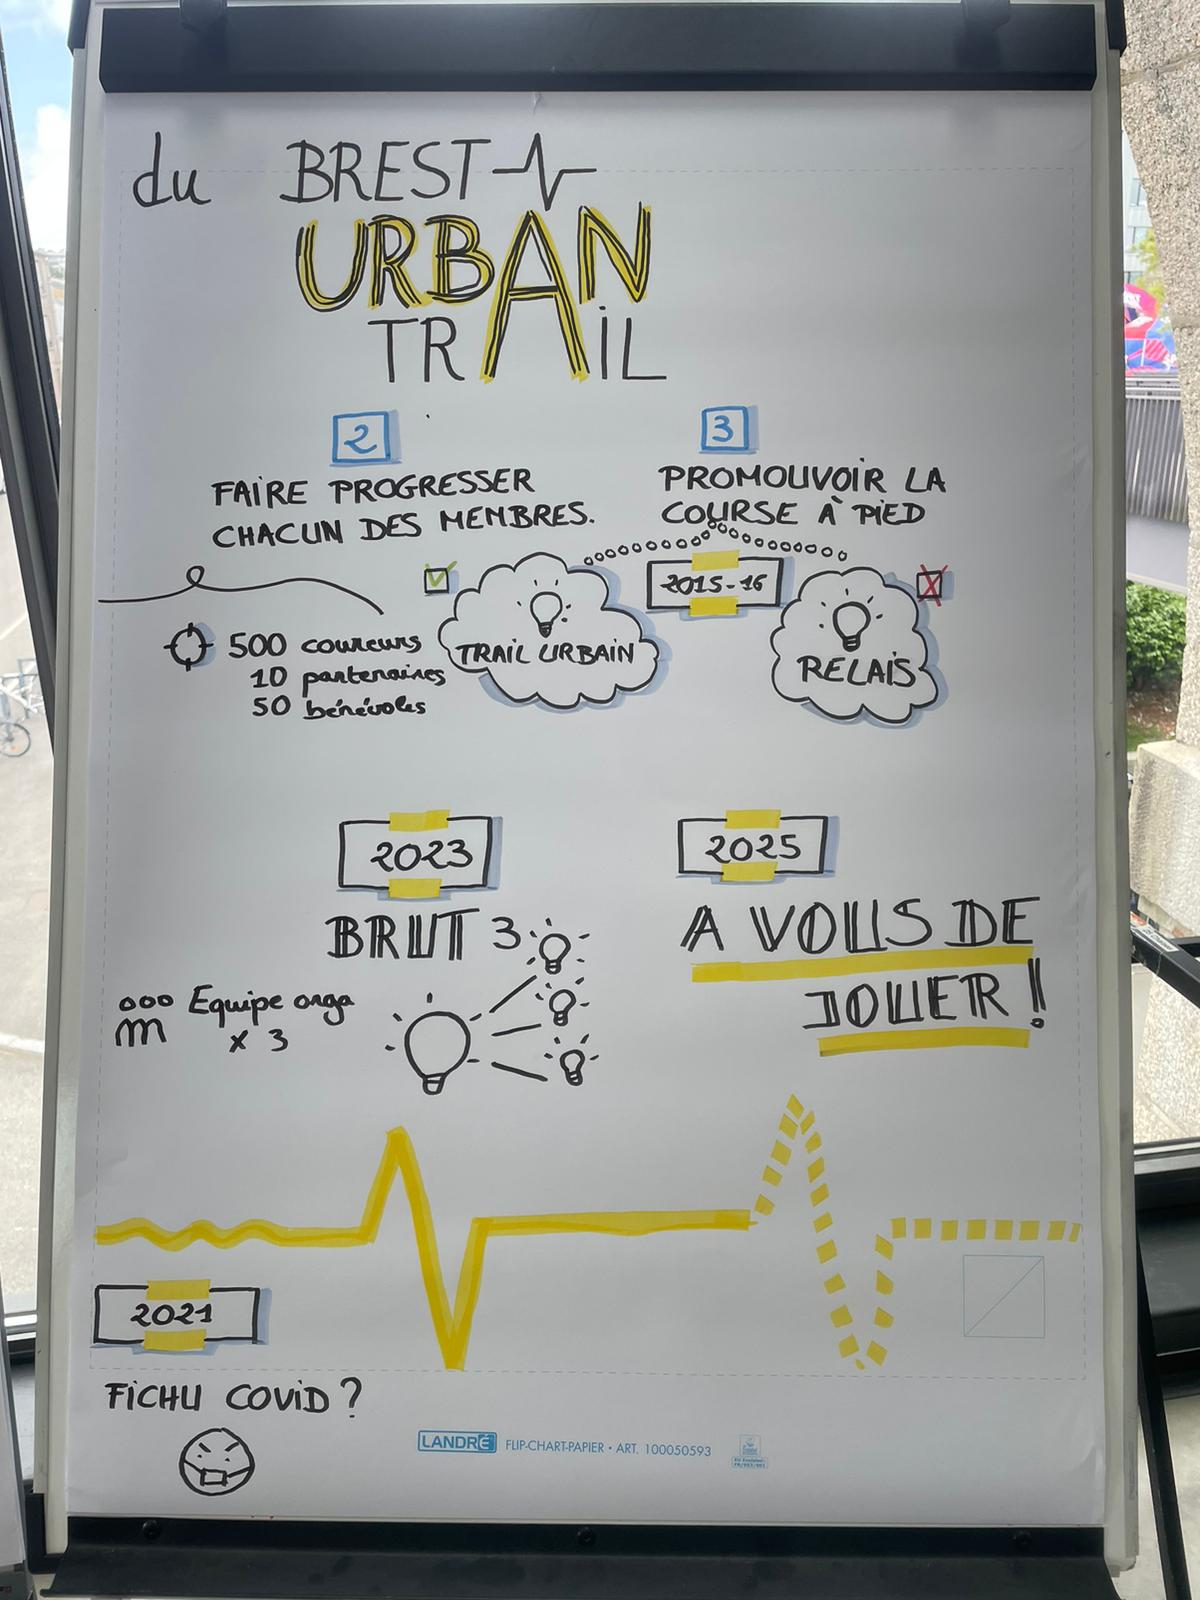 du BREST
URBAN
TRAIL
2
FAIRE PROGRESSER
CHACUN DES MEMBRES.
3
PROMOUVOIR LA
COURSE À PIED
2015-16
TRAIL URBAIN
RELAIS
500 coureurs
10 partenaires
50 bénévoles
2023
BRUT 3
Equipe orga
x 3
2025
A VOUS DE
JOUER !
2021
FICHU COVID ?
LANDRÉ FLIP-CHART-PAPIER • ART. 100050593